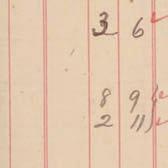 3 6
8 9
2 11